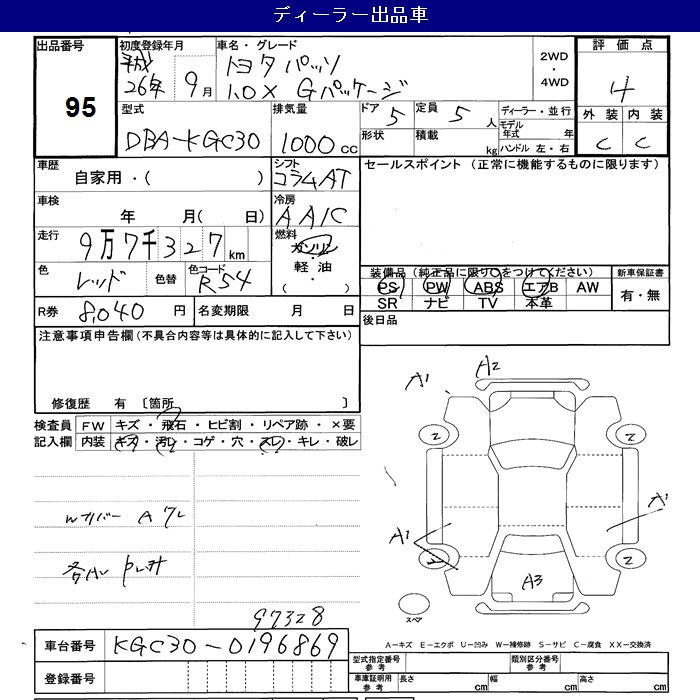 ディーラー出品車
出品番号
95
初度登録年月
平成
26年 9月
車名・グレード
トヨタ パッソ
1.0X Gパッケージ
2WD
・
4WD
評価点
4
外装 内装
C C
型式
DBA-KGC30
排気量
1000 cc
ドア 5
定員 5 人
形状
積載 kg
ディーラー・並行
モデル
年式 年
ハンドル 左・右
車歴
自家用・( )
シフト
コラムAT
セールスポイント(正常に機能するものに限ります)
車検
年 月( 日)
冷房
AAIC
走行
9万7千327km
燃料
ガソリン
・
軽油
・
( )
色
レッド
色替
色コード
R54
装備品(純正品に限り○をつけてください)
PS PW ABS エアB AW
SR ナビ TV 本革
新車保証書
有・無
R券 8,040 円
名変期限 月 日
後日品
注意事項申告欄(不具合内容等は具体的に記入して下さい)
修復歴 有 [箇所 ]
検査員
記入欄
FW キズ・飛石・ヒビ割・リペア跡・×要
内装 キズ・汚レ・コゲ・穴・スレ・キレ・破レ
A1
A2
2
2
A1
A1
2
2
A3
スペア
Wカバー A ワレ
97328
車台番号
KGC30-0196869
登録番号
A－キズ E－エクボ U－凹み W－補修跡 S－サビ C－腐食 XX－交換済
型式指定番号
参考
類別区分番号
参考
車庫証明用
参考
長さ cm
幅 cm
高さ cm